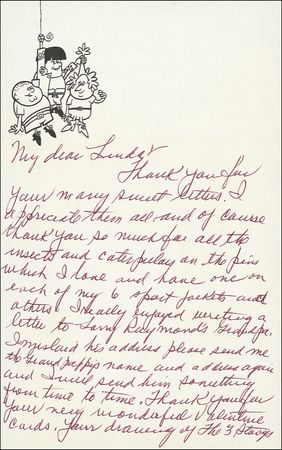 My dear Linda
Thank you for
your many sweet letters. I
appreciate them all and of course
thank you so much for all the
insects and caterpillars on the pins
which I love and have one on
each of my 6 sport jackets and
others. I really enjoyed writing a
letter to Larry Raymonds Grandpa.
I mislaid his address please send me
the Grand Pappys name and address again
and I will send him something
from time to time. Thank you for
your very wonderful valentine
cards. Your drawing of The 3 Stooges